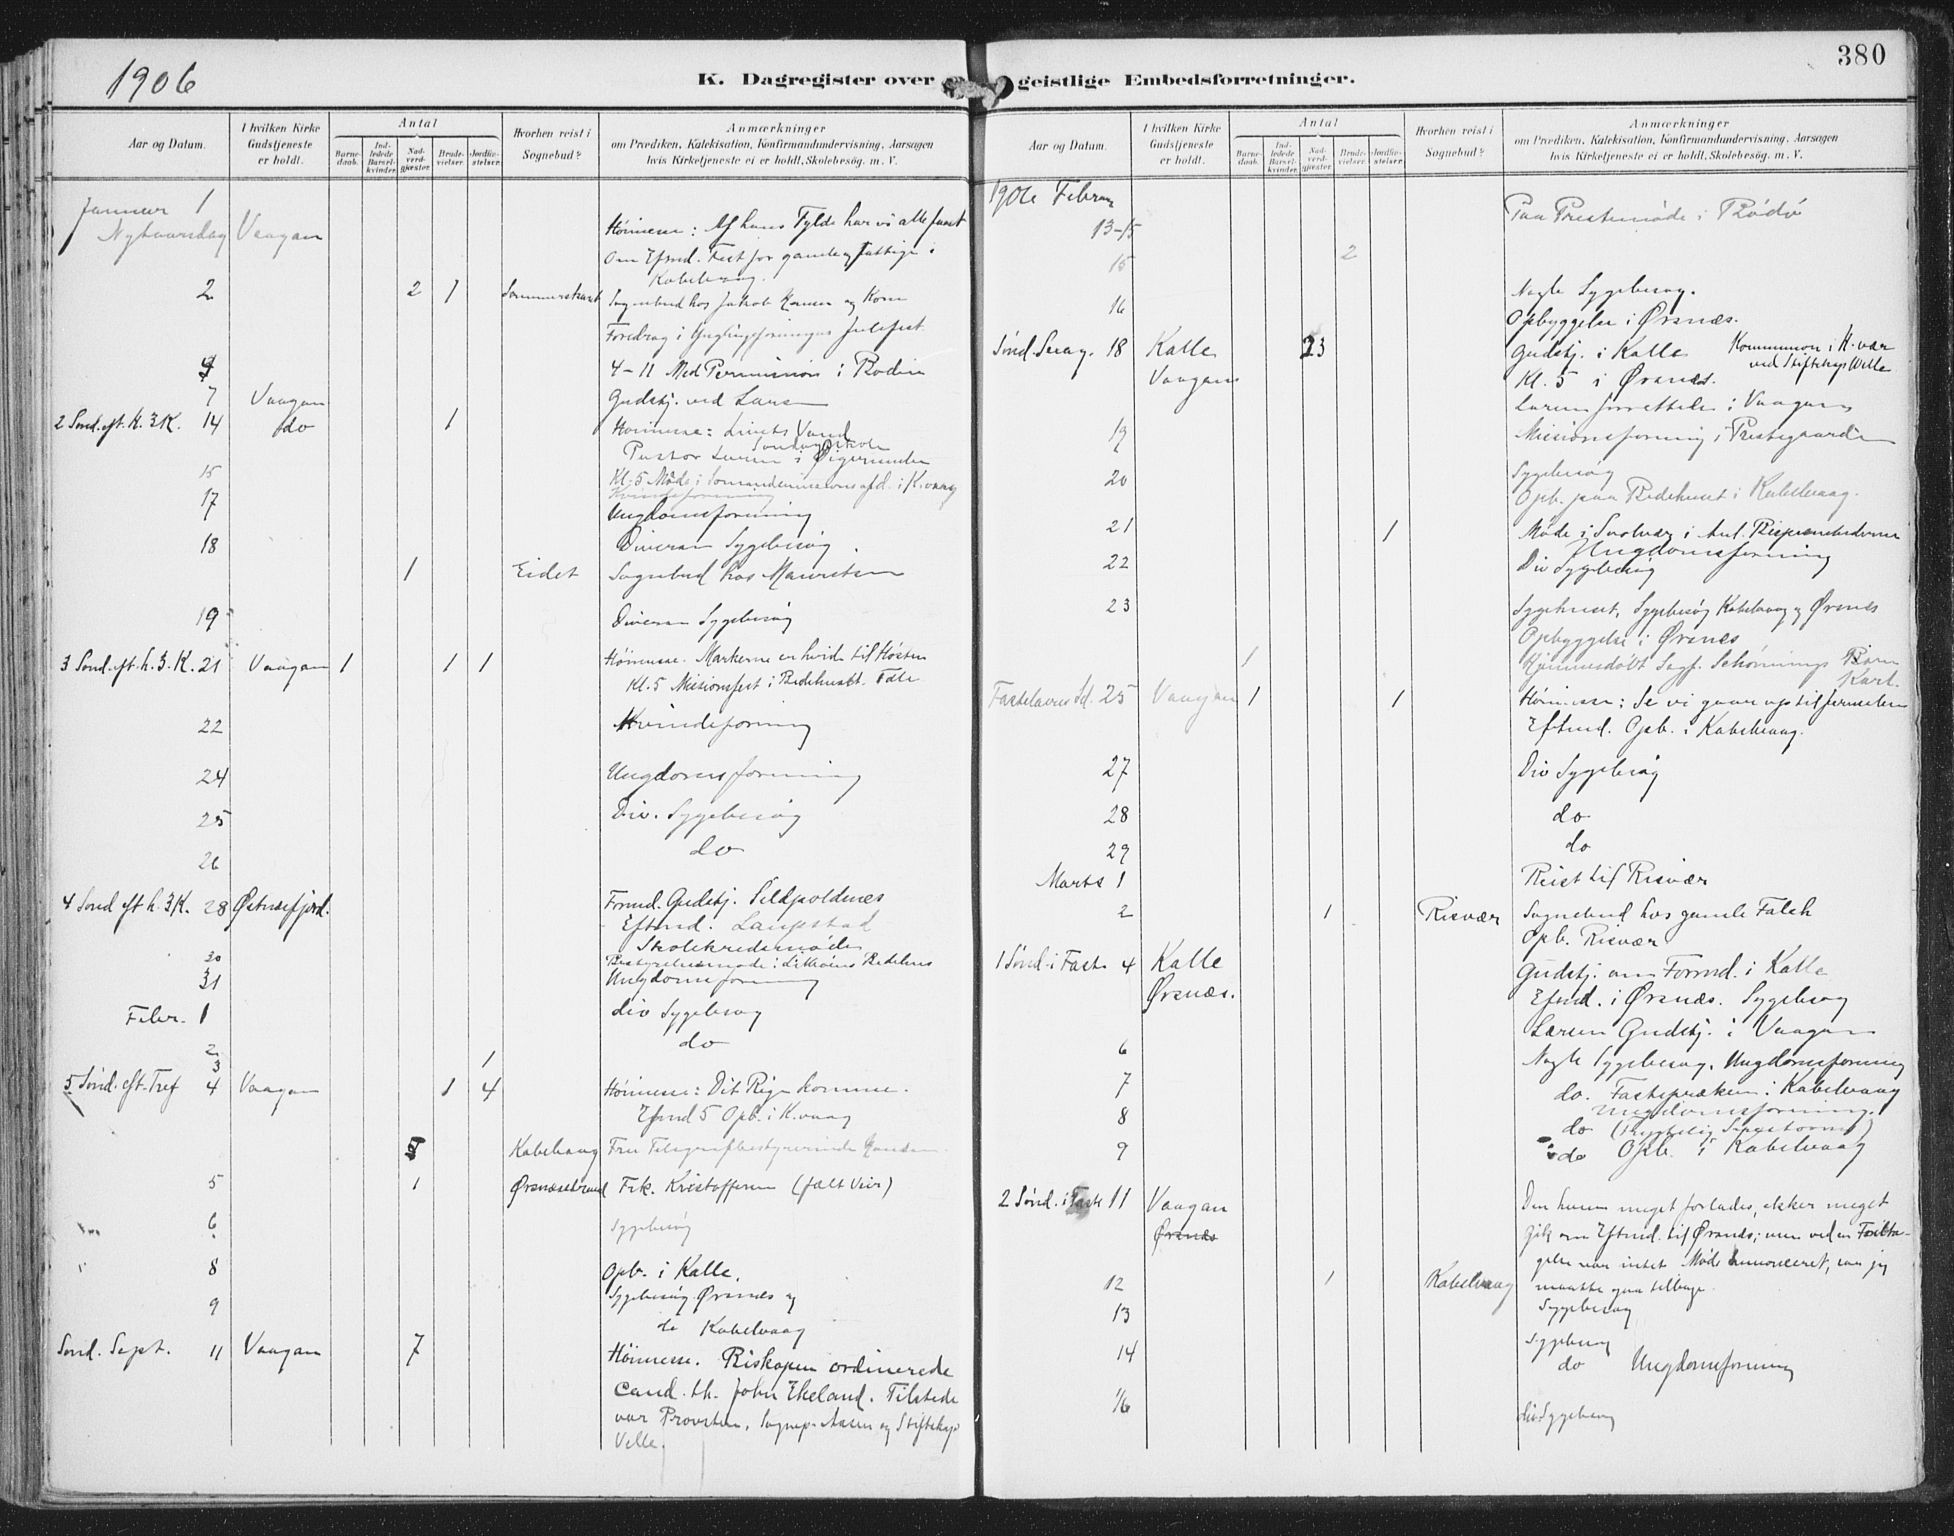 1906
K. Dagregister over
Aar og Datum.
I hvilken Kirke Gudstjeneste er holdt.
Antal
Barnedaab.
Indledede Barselkvinder.
Nadverdgjæster.
Brudevielser.
Jordfæstelser.
Hvorhen reist i Sognebud?
Anmærkninger
om Prædiken, Katekisation, Konfirmandundervisning, Aarsagen
hvis Kirketjeneste ei er holdt, Skolebesøg m. V.
Januar 1
Nytaarsdag Vaagan Høimesse: Af hans Fylde har vi alle faaet
Om Efmd. Fest for gamle og fattige i
Kabelvaag.
2 2 1 Sognebud hos Jakob og Kone
Foredrag i Ynglingeforeningens Julefest.
4 4-11 Med Permission i Bodin
7 Vaagan Gudstj. ved Larsen
2 Sønd. eft. h. 3 K. 14 do 1 Høimesse: Livets Vand
Søndagsskole
Pastor Larsen i
15 Kl. 5 Møde i i K.vaag
Kvindeforening
17 Ungdomsforening
18 Diverse Sygebesøg.
1 Eidet Sognebud hos
19 Diverse Sygebesøg
3 Sønd. eft. h. 3. K. 21 Vaagan 1 1 1 Høimesse. Markerne er hvide til Høsten
Kl. 5 Missionsfest i Bedehuset. Tale
22 Kvindeforening
24 Ungdomsforening
25 Div. Sygebesøg
26 do
4 Sønd eft h. 3 K. 28 Østnesfjord. Formd. Gudstj. Sildpoldnes
Eftmd. Laupstad
Skolekredsmøde
30 Bestyrelsesmøde i Bedehus
31 Ungdomsforening
Febr. 1 div Sygebesøg
2 do
3 1
5 Sønd. eft. 4 Vaagan 1 4 Høimesse: Dit Rige komme.
Efmd 5 Opb. i K.vaag
Kabelvaag Fru Telegrafbestyrerinde
5 1 Ørsnesstrand Frk. Kristoffersen
6 Sygebesøg
8 Opb. i Kalle.
9 Sygebesøg Ørsnes og
do Kabelvaag
Sønd. Sept. 11 Vaagan 7 Høimesse. Biskopen ordinerede
Cand. th. John Ekeland. Tilstede
var Provsten, Sognep. Aasen og Stiftskap.
Velle.
380
geistlige Embedsforretninger.
Aar og Datum.
I hvilken Kirke Gudstjeneste er holdt.
Antal
Barnedaab.
Indledede Barselkvinder.
Nadverdgjæster.
Brudevielser.
Jordfæstelser.
Hvorhen reist i Sognebud?
Anmærkninger
om Prædiken, Katekisation, Konfirmandundervisning, Aarsagen
hvis Kirketjeneste ei er holdt, Skolebesøg m. V.
1906 Februar
13-15 Paa Prestemøde i Bodø
15 2
16 Nogle Sygebesøg.
Opbyggelse i Ørsnes.
Sønd. Sexag. 18 Kalle 23 Gudstj. i Kalle Kommunion i H.vær
ved Stiftskap Velle
Vaagan Kl. 5 i Ørsnes.
Larsen forrettede i Vaagan
19 Missionsforening i Prestegaarden
20 Sygebesøg
Opb. paa Bedehuset i Kabelvaag.
21 1 Møde i Svolvær i Anl.
22 Ungdomsforening
Div Sygebesøg
23 Sygehuset, Sygebesøg Kabelvaag og Ørsnes
Opbyggelse i Ørsnes
1 Hjemmedøbt Schønnings Barn
Karl.
Fastelavns Sd. 25 Vaagan 1 1 Høimesse: Se vi gaar op til Jerusalem
Eftmd. Opb. i Kabelvaag.
27 Div Sygebesøg
28 do
29 do
Marts 1 Reist til Risvær
2 1 Risvær Sognebud hos gamle Falch
Opb. Risvær
1 Sønd i Fast 4 Kalle Gudstj. om Formd. i Kalle
Ørsnæs. Efmd. i Ørsnæs. Sygebesøg
Larsen Gudstj. i Vaagan
6 Nogle Sygebesøg. Ungdomsforening
7 do. Fasteprækен i Kabelvaag
Ungdomsforening.
8 do
9 do Opb. i Kabelvaag
2 Sønd. i Faste 11 Vaagan meget
Ørsnes Gik om Eftmd. til Ørsnes; men ved en Feilta-
gelse var intet Møde annonceret, saa jeg
12 1 Kabelvaag maatte gaa tilbage.
13 Sygebesøg
Sygebesøg
14 do Ungdomsforening
16 div. Sygebesøg